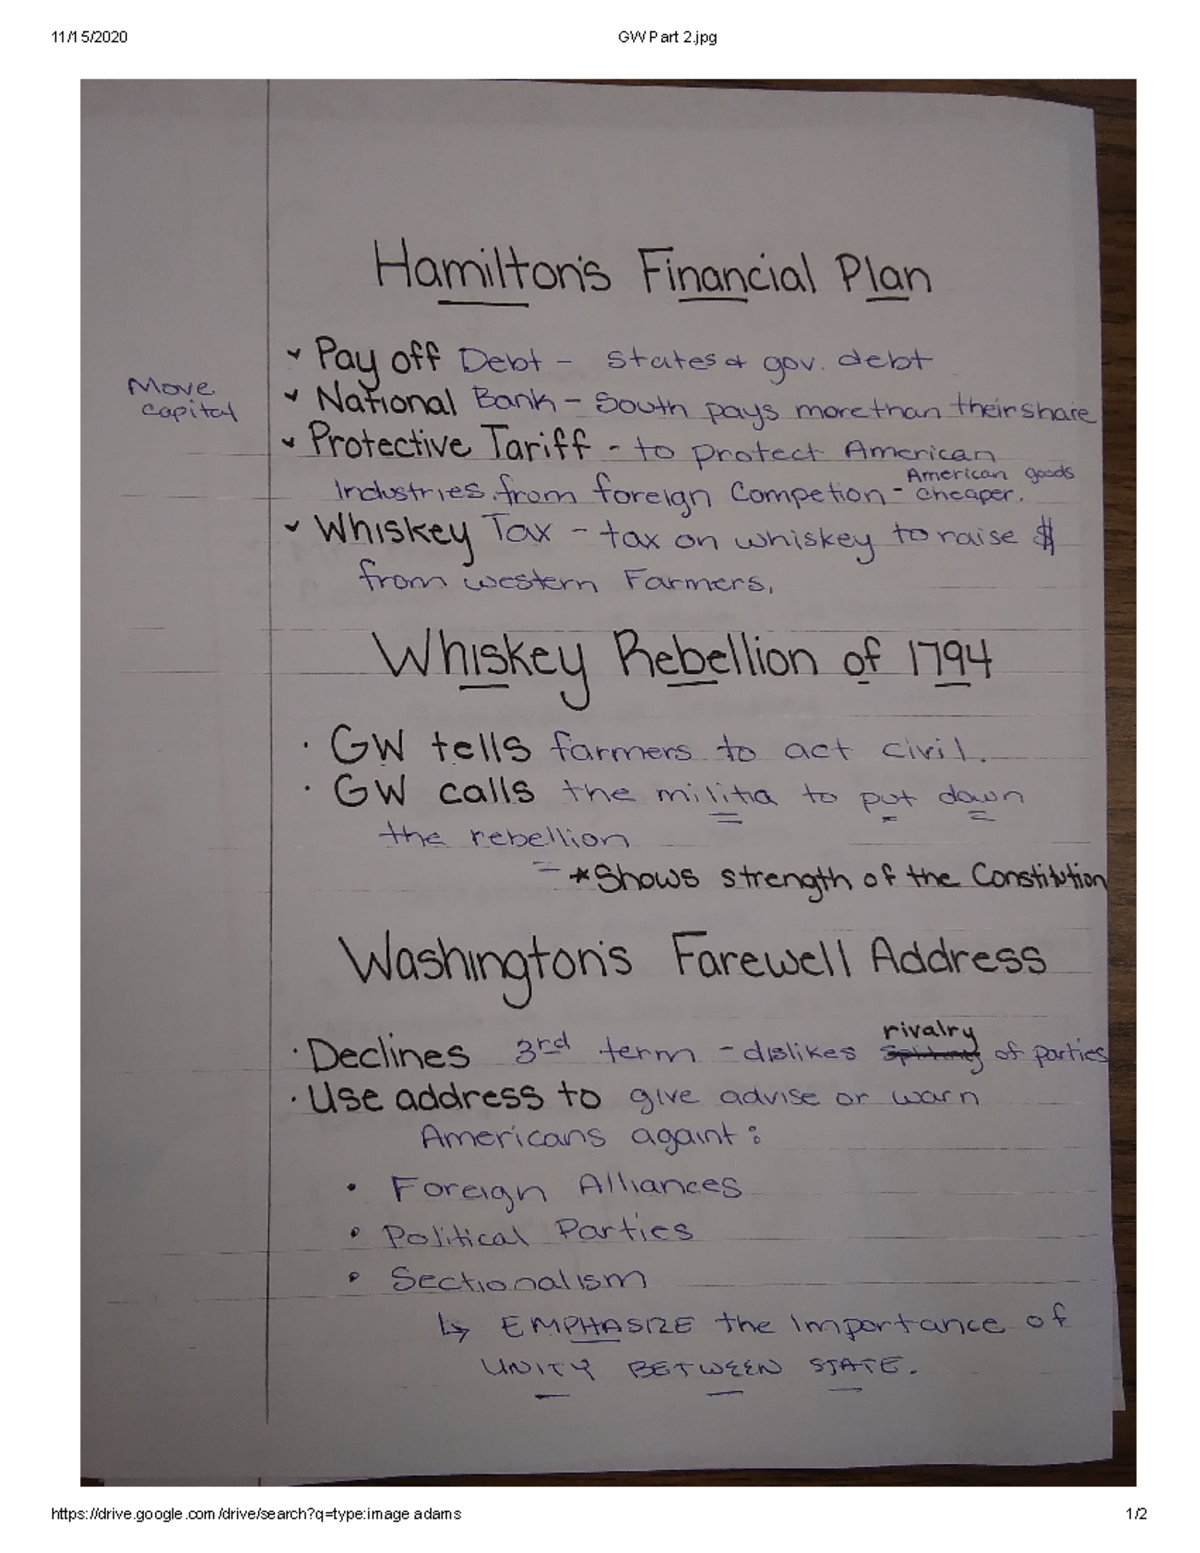 11/15/2020 GW Part 2.jpg
Hamilton's Financial Plan
Pay off Debt - States & gov. debt
Move
capital
National Bank - South pays more than their share
Protective Tariff - to protect American
Industries from foreign Competion - American goods cheaper.
Whiskey Tax - tax on whiskey to raise $
from western Farmers.
Whiskey Rebellion of 1794
· GW tells farmers to act civil.
· GW calls the militia to put down
the rebellion
*Shows strength of the Constitution
Washington's Farewell Address
· Declines 3rd term - dislikes rivalry of parties
· Use address to give advise or warn
Americans againt:
• Foreign Alliances
• Political Parties
• Sectionalism
↳ EMPHASIZE the Importance of
UNITY BETWEEN STATE.
https://drive.google.com/drive/search?q=type:image adams 1/2